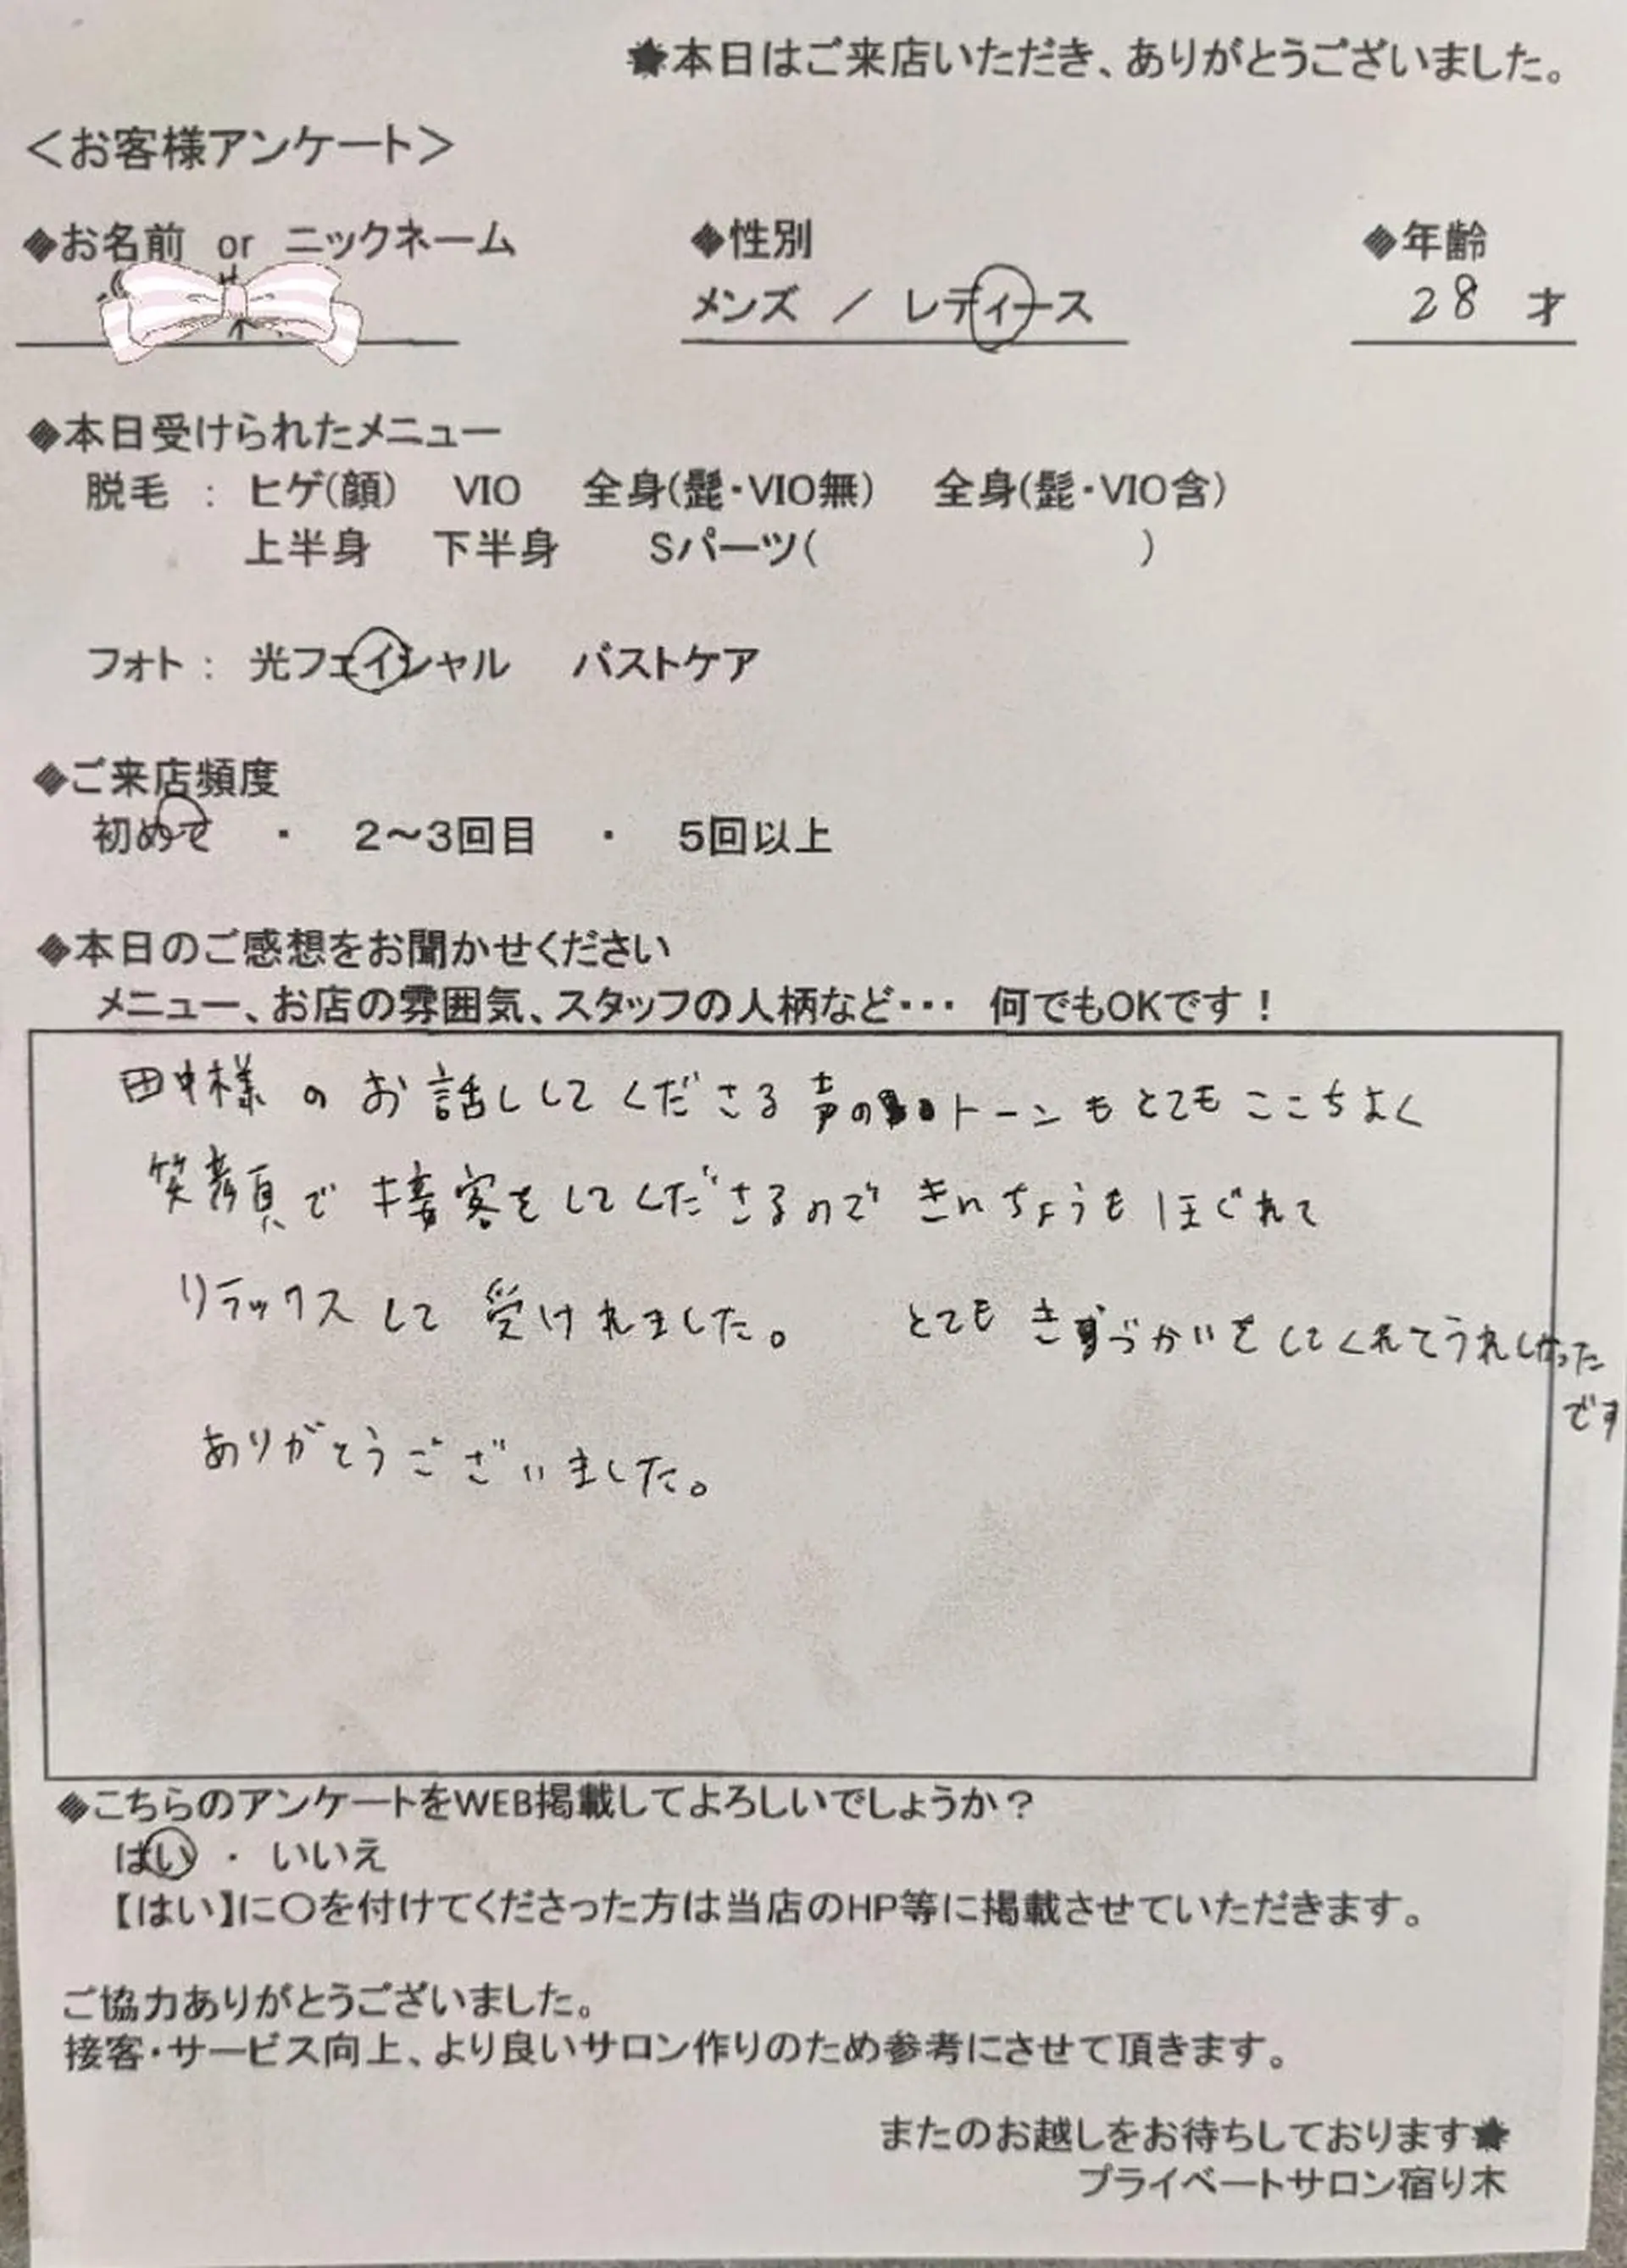 ★本日はご来店いただき、ありがとうございました。
＜お客様アンケート＞
◆お名前 or ニックネーム ◆性別 ◆年齢
メンズ ／ レディース 28 才
◆本日受けられたメニュー
脱毛 : ヒゲ(顔) VIO 全身(髭・VIO無) 全身(髭・VIO含)
上半身 下半身 Sパーツ( )
フォト : 光フェイシャル バストケア
◆ご来店頻度
初めて ・ 2～3回目 ・ 5回以上
◆本日のご感想をお聞かせください
メニュー、お店の雰囲気、スタッフの人柄など・・・ 何でもOKです！
田中様のお話ししてくださる声のトーンもとてもここちよく
笑顔で接客をしてくださるので きんちょうもほぐれて
リラックスして受けれました。 とてもきづかいをしてくれてうれしかった
です
ありがとうございました。
◆こちらのアンケートをWEB掲載してよろしいでしょうか？
はい ・ いいえ
【はい】に〇を付けてくださった方は当店のHP等に掲載させていただきます。
ご協力ありがとうございました。
接客・サービス向上、より良いサロン作りのため参考にさせて頂きます。
またのお越しをお待ちしております★
プライベートサロン宿り木